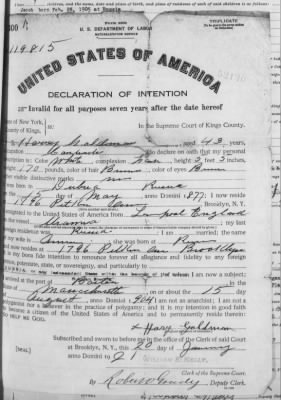 children, and the name, date and place of birth, and place of residence of each of said children is as follows:
Jacob born Feb. 1905 at Russia
TRIPLICATE
U. S. DEPARTMENT OF LABOR
NATURALIZATION SERVICE
119815
UNITED STATES OF AMERICA
DECLARATION OF INTENTION
Invalid for all purposes seven years after the date hereof
State of New York,
County of Kings,
ss:
In the Supreme Court of Kings County.
I, Harry Goldman, aged 43 years,
occupation do declare on oath that my personal
description is: Color White, complexion, height 5 feet 3 inches,
weight 170 pounds, color of hair Brown, color of eyes Brown
other visible distinctive marks
I was born in Russia
on the day of May, anno Domini 1877; I now reside
at 1796 Pitkin Ave, Brooklyn, N.Y.
I emigrated to the United States of America from Liverpool England
; my last
foreign residence was Russia; I am married; the name
of my wife is; she was born in Russia
and now resides at 1796 Pitkin Ave Brooklyn
It is my bona fide intention to renounce forever all allegiance and fidelity to any foreign
prince, potentate, state, or sovereignty, and particularly to
of whom I am now a subject;
I arrived at the port of Boston
Massachusetts, on or about the 15 day
of August, anno Domini 1904; I am not an anarchist; I am not a
polygamist nor a believer in the practice of polygamy; and it is my intention in good faith
to become a citizen of the United States of America and to permanently reside therein:
SO HELP ME GOD.
x Harry Goldman
Subscribed and sworn to before me in the office of the Clerk of said Court
at Brooklyn, N.Y., this 20 day of January
anno Domini 1921
[SEAL]
WILLIAM E. KELLY
Clerk of the Supreme Court.
By, Deputy Clerk.